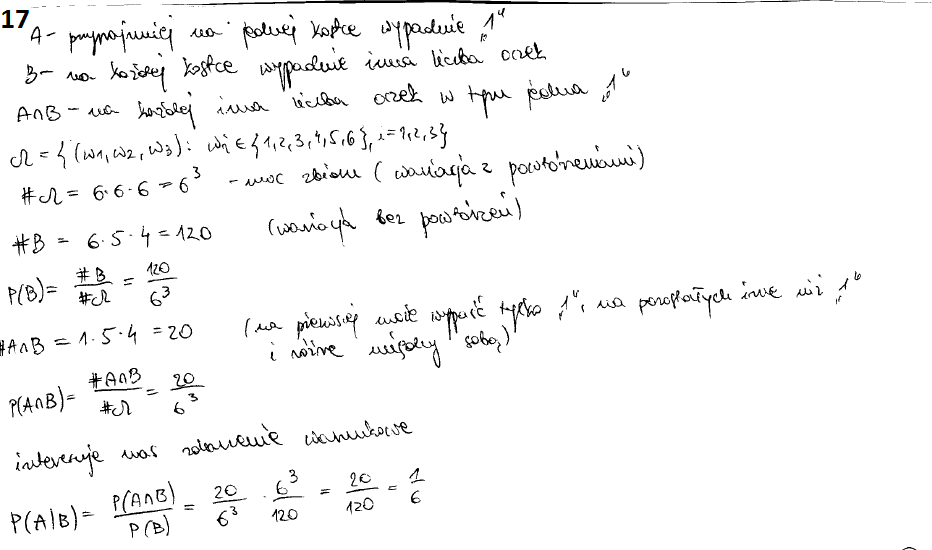 17
A - przynajmniej na jednej kostce wypadnie „1"
B - na każdej kostce wypadnie inna liczba oczek
A∩B - na każdej inna liczba oczek w tym jedna „1"
Ω = {(ω1, ω2, ω3): ωi ∈ {1,2,3,4,5,6}, i=1,2,3}
#Ω = 6·6·6 = 6³ - moc zbioru (wariacja z powtórzeniami)
#B = 6·5·4 = 120 (wariacja bez powtórzeń)
P(B) = #B/#Ω = 120/6³
#A∩B = 1·5·4 = 20 (na pierwszej może wypaść tylko „1", na pozostałych inne niż „1"
i różne między sobą)
P(A∩B) = #A∩B/#Ω = 20/6³
interesuje nas zdarzenie warunkowe
P(A|B) = P(A∩B)/P(B) = 20/6³ · 6³/120 = 20/120 = 1/6